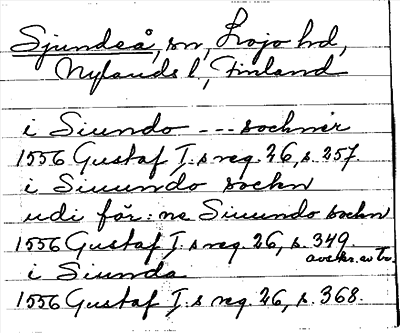 Sjundeå, sn, Lojo hd,
Nylands l, Finland
i Siundo --- sochner
1556 Gustaf I.s reg. 26, s. 257.
i Siuundo sochn
udi för: ne Siuundo sochn
1556 Gustaf I.s reg. 26, s. 349.
avskr. av Tv.
i Siunda
1556 Gustaf I.s reg. 26, s. 368.